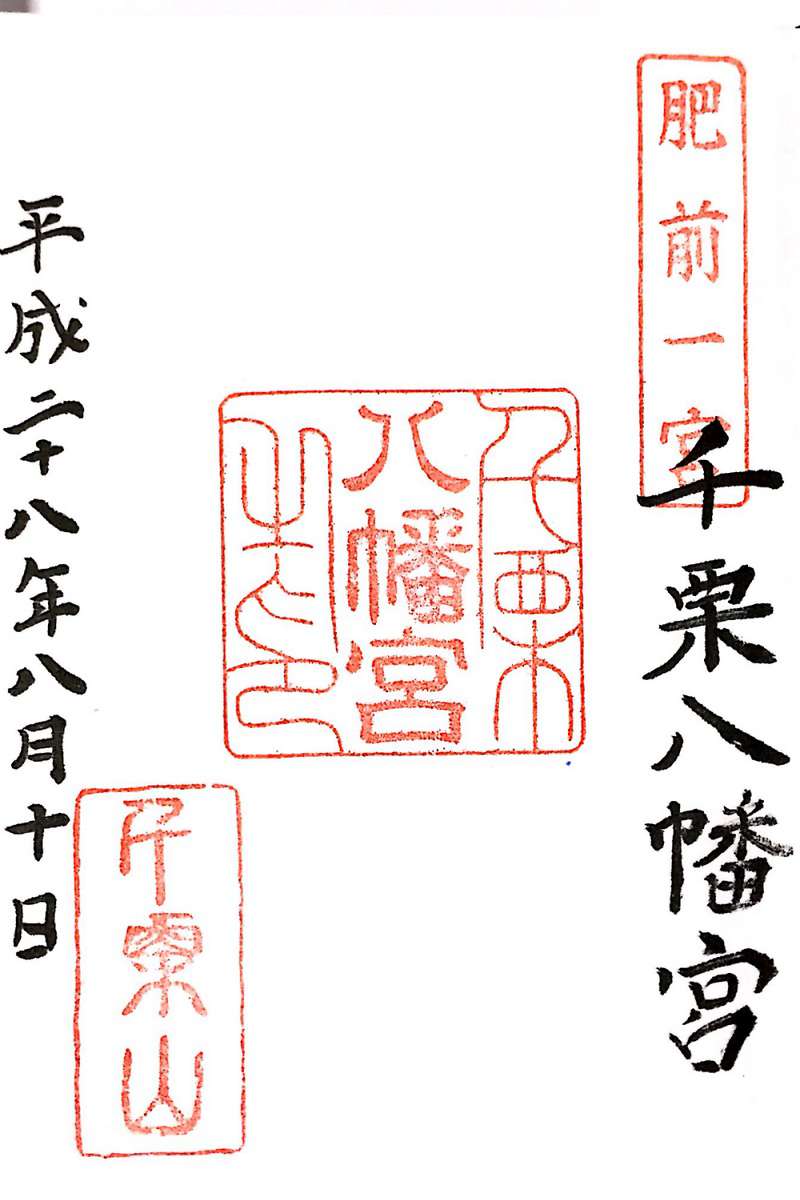 肥前一宮
千栗八幡宮
千栗
八幡宮
之印
千栗山
平成二十八年八月十日